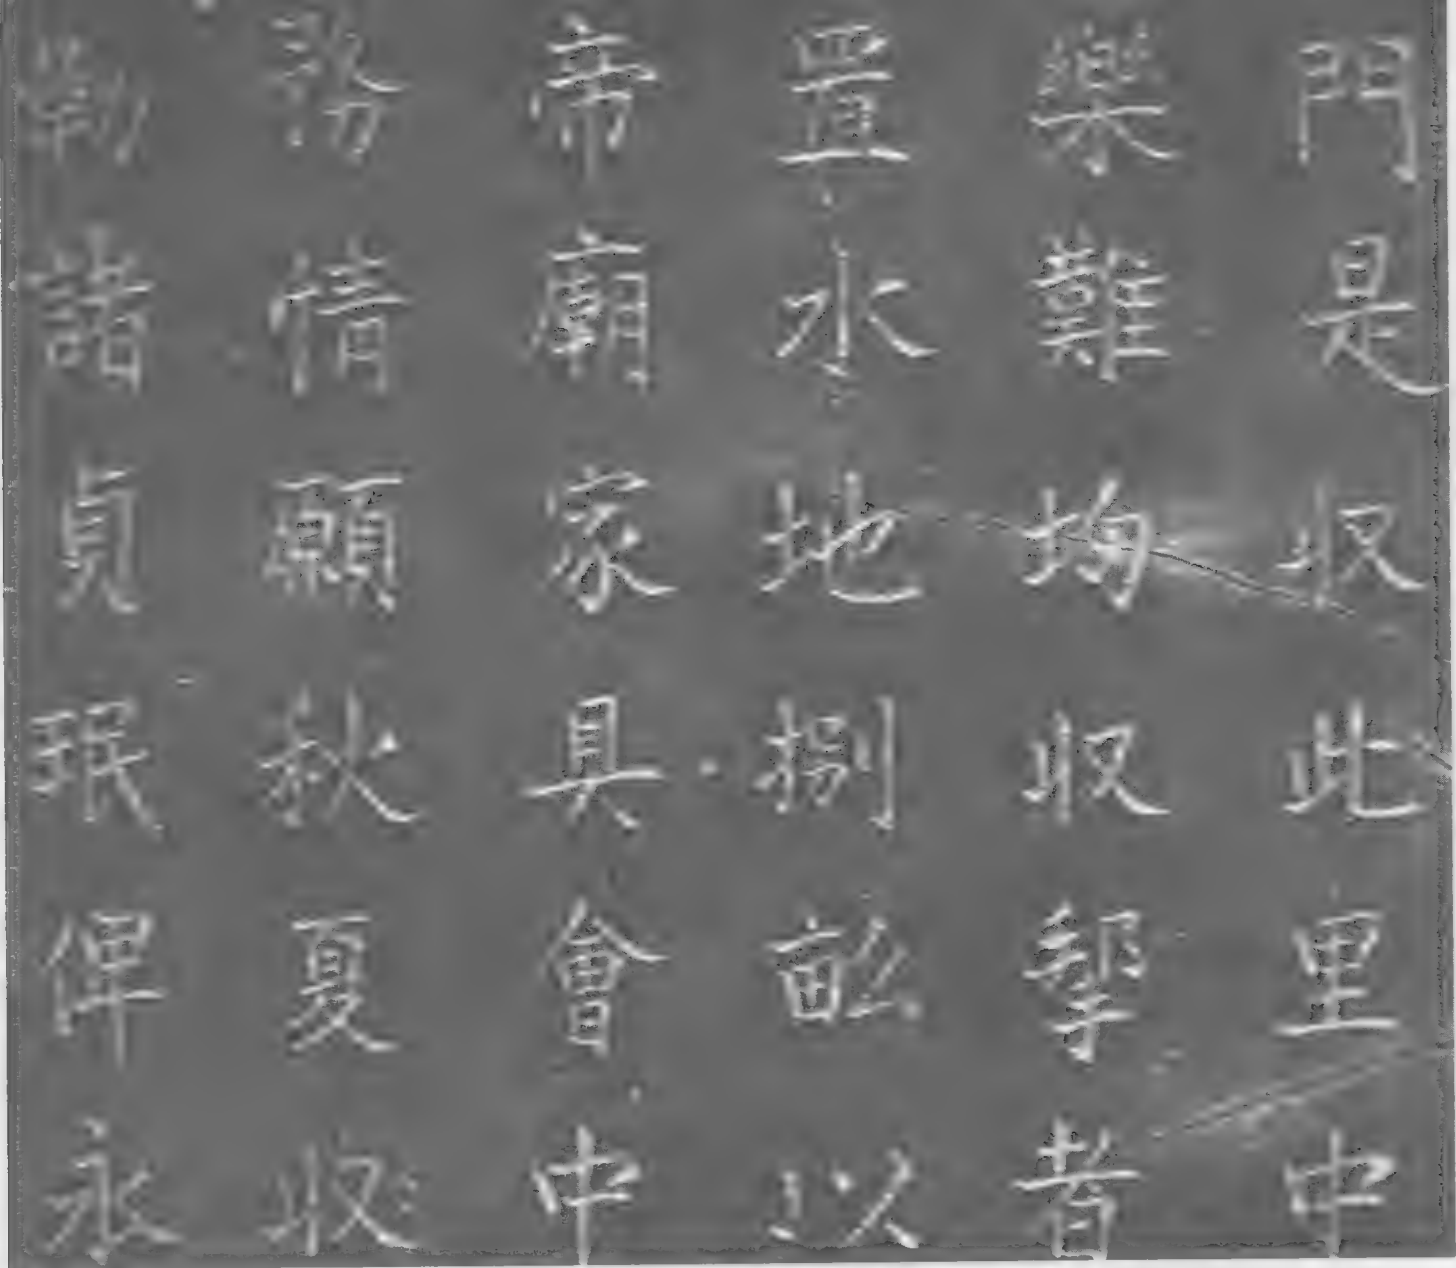 門是収此里中
樂難均収掔者
置水地捌畝以
帝廟家具會中
務情願秋夏収
勒諸貞珉俾永